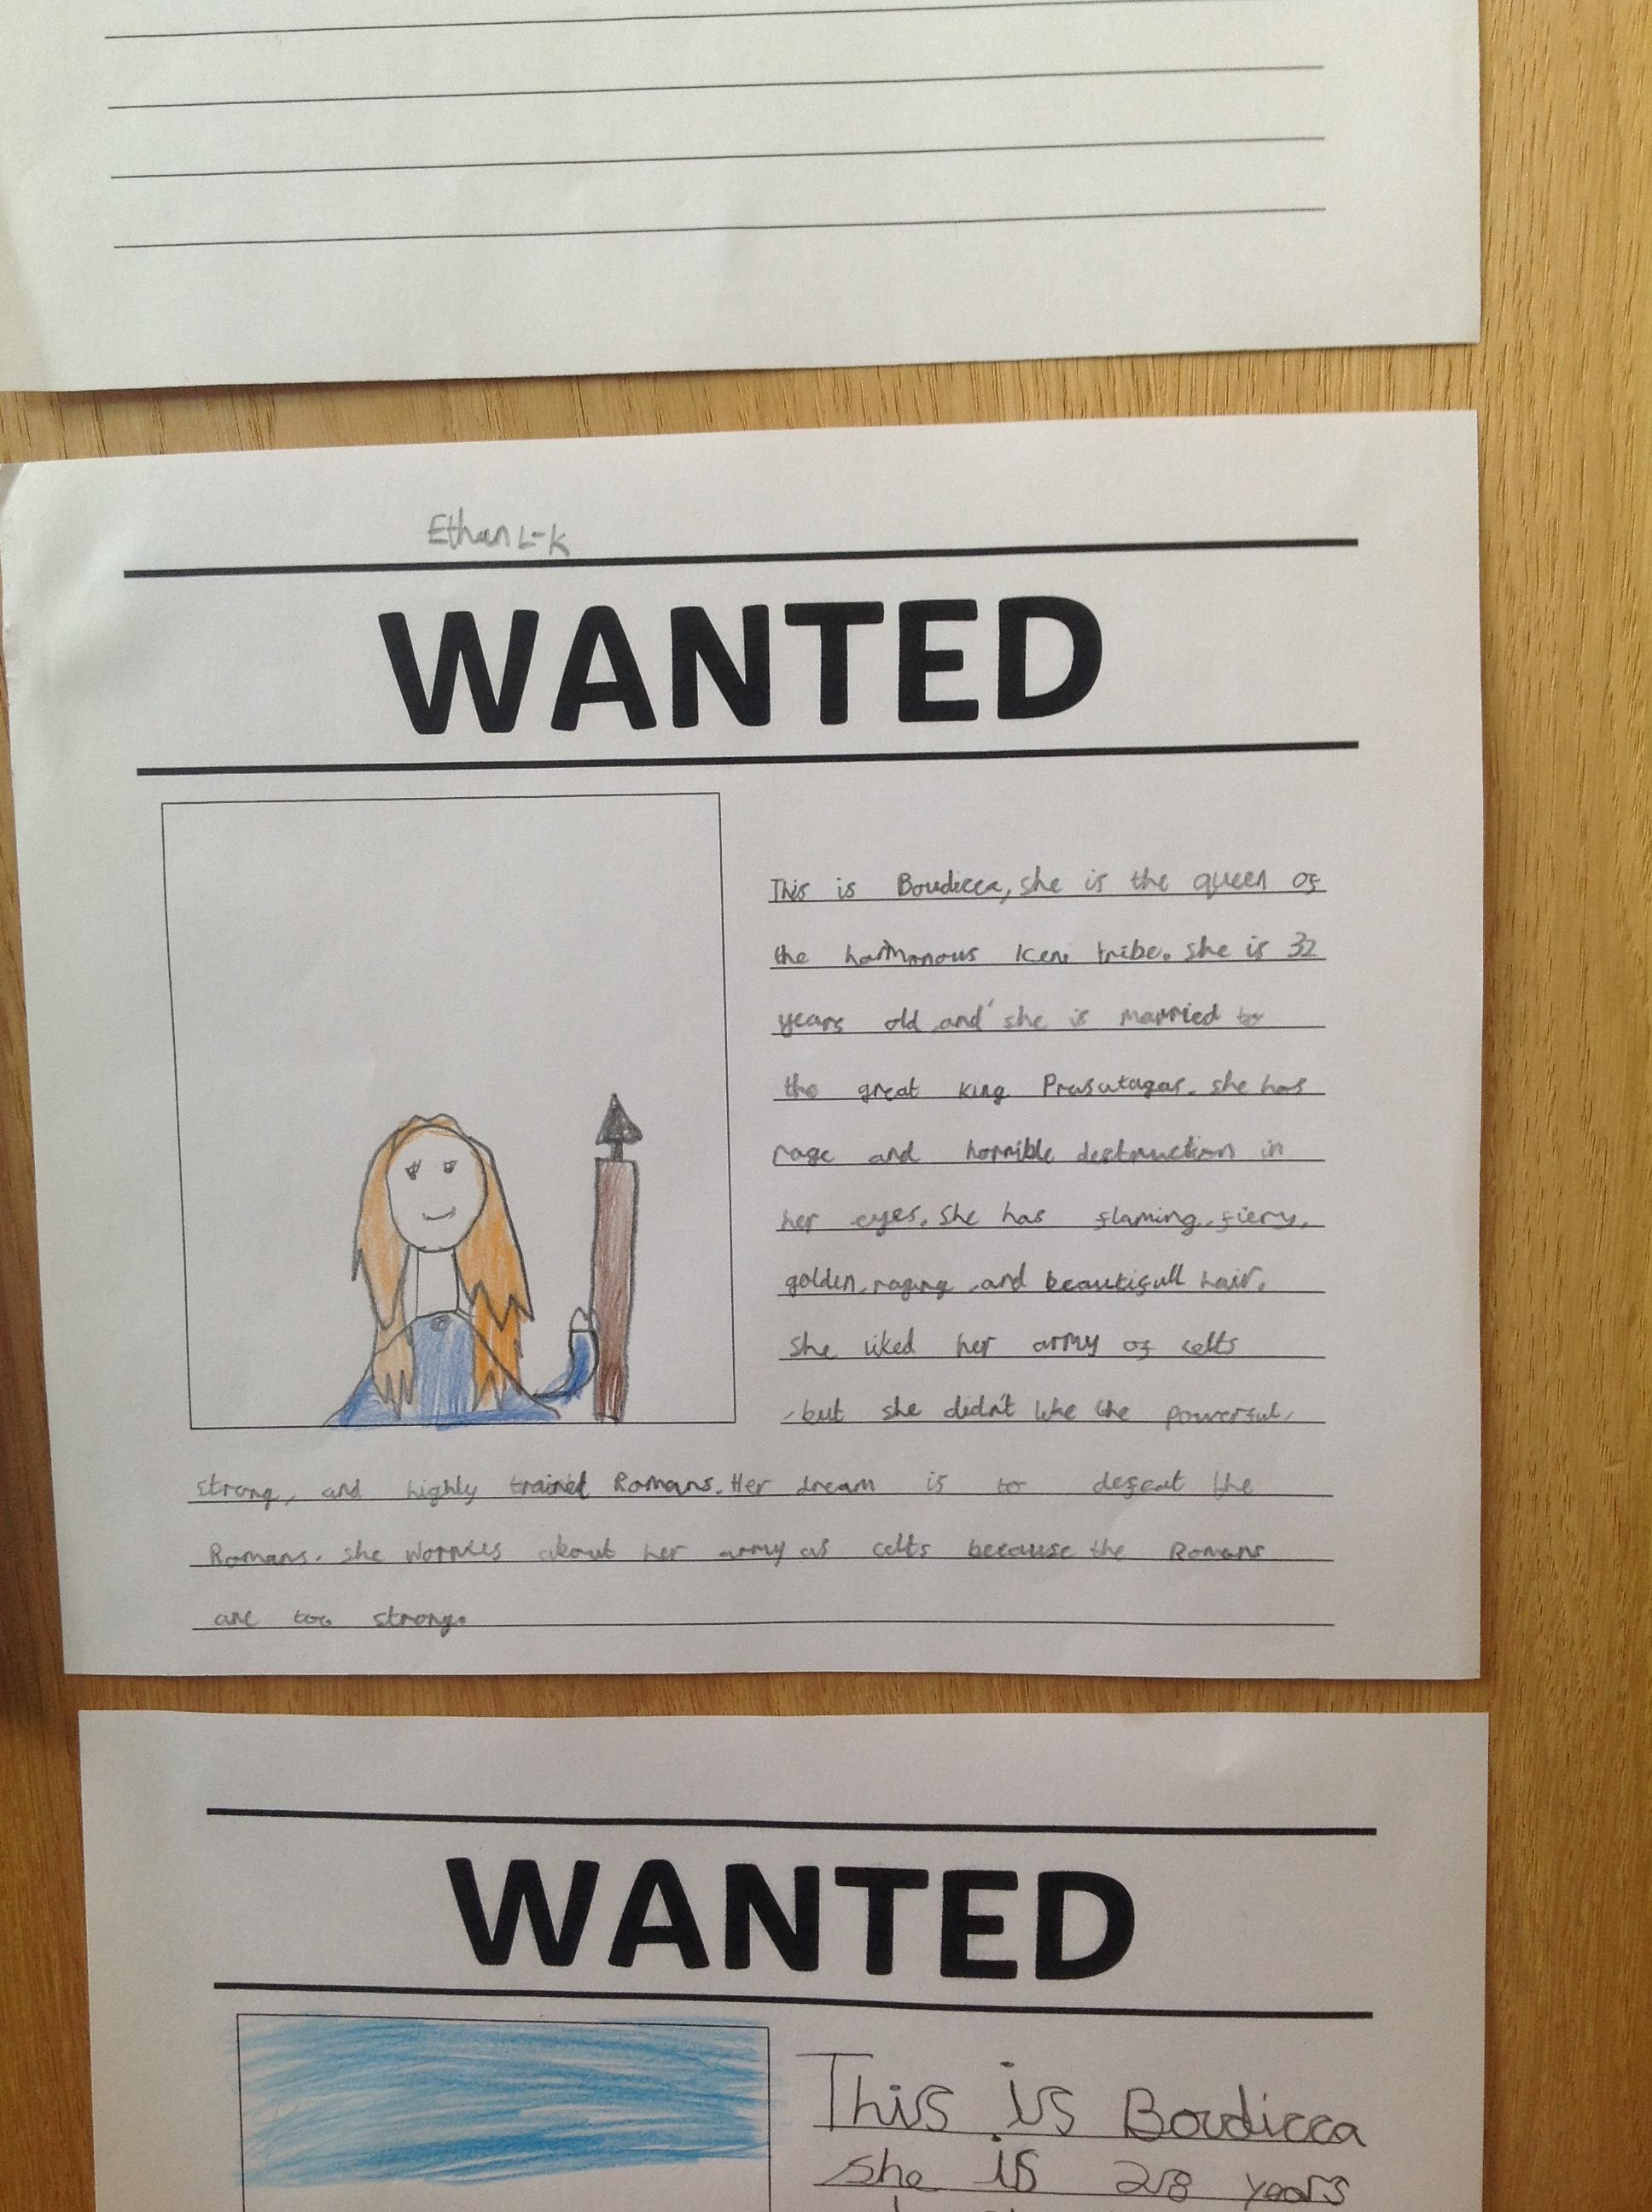 Ethan L-K
WANTED
This is Boudicca, she is the queen of
the harmonous Iceni tribe. she is 32
years old and she is married to
the great king Prasutagas. she has
rage and horrible destruction in
her eyes. she has flaming, fiery,
golden, raging, and beautifull hair.
she liked her army of celts
, but she didn't like the powerful,
strong, and highly trained Romans. Her dream is to defeat the
Romans. she worries about her army as celts because the Romans
are too strong.
WANTED
This is Boudicca
she is 28 years